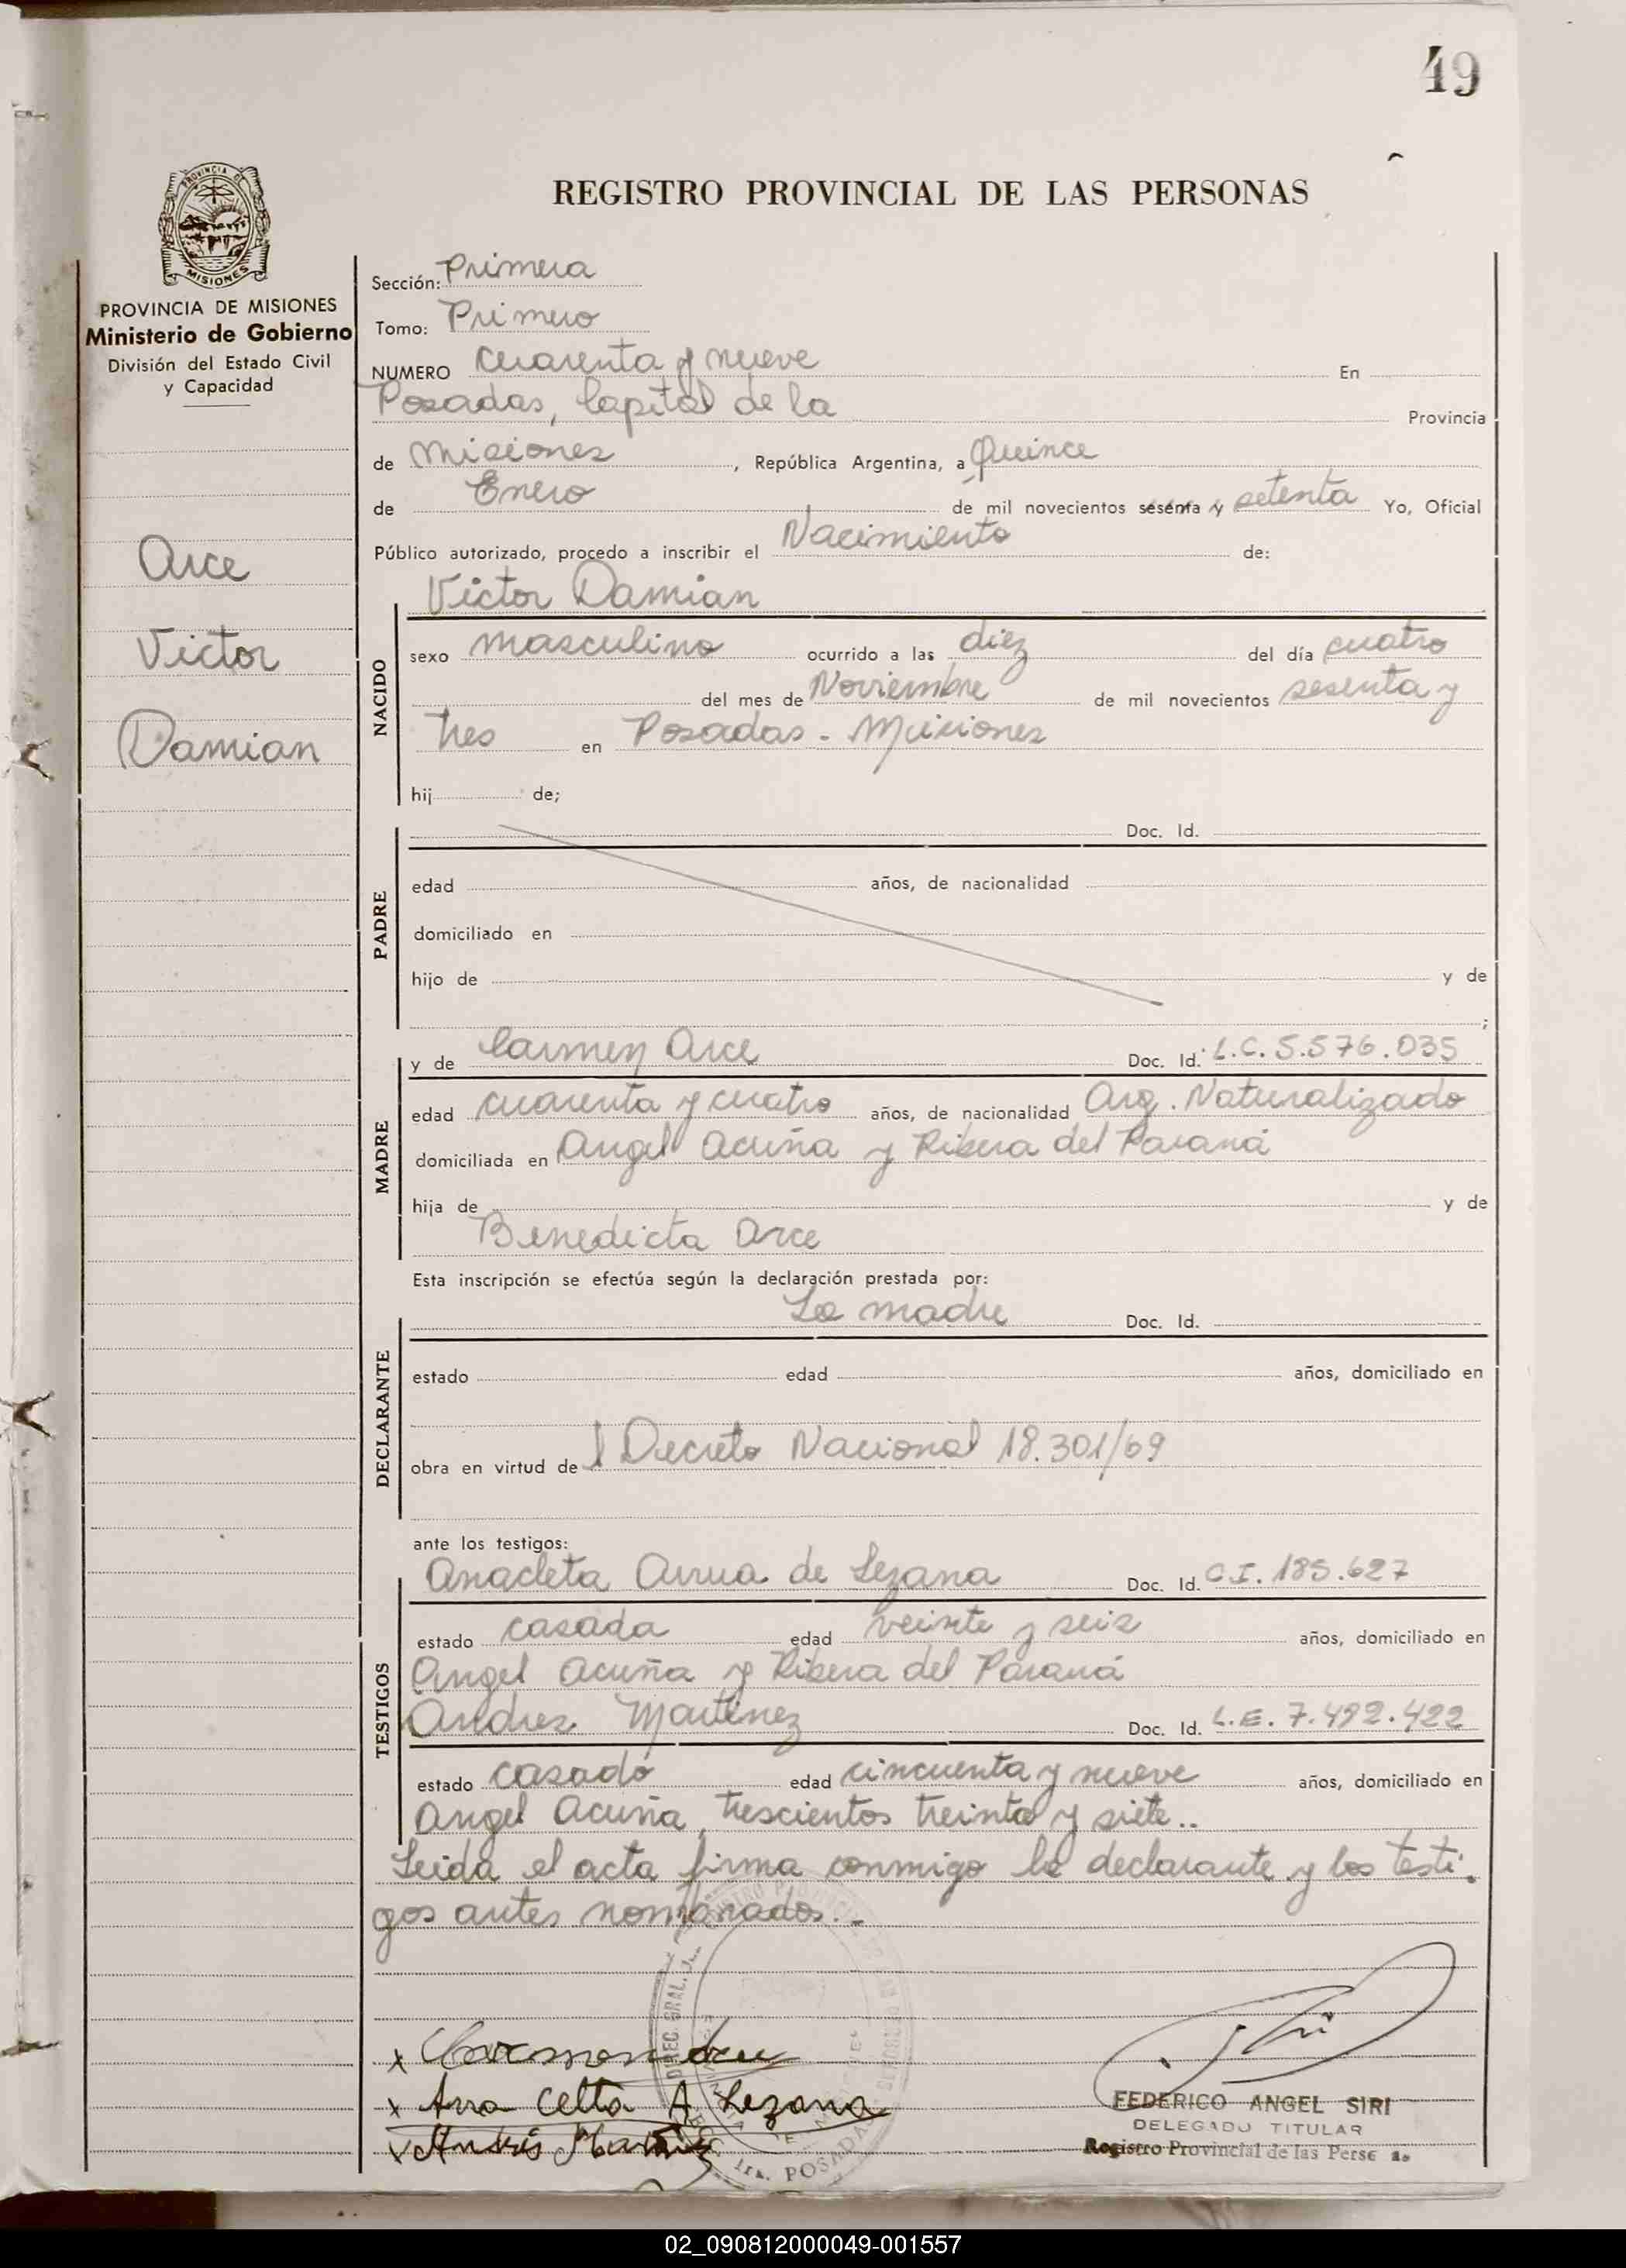 49
REGISTRO PROVINCIAL DE LAS PERSONAS
PROVINCIA DE
MISIONES
PROVINCIA DE MISIONES
Ministerio de Gobierno
División del Estado Civil
y Capacidad
Arce
Victor
Damian
Sección: Primera
Tomo: Primero
NUMERO cuarenta y nueve En
Posadas, Capital de la Provincia
de Misiones, República Argentina, a Quince
de Enero de mil novecientos sesenta y setenta Yo, Oficial
Público autorizado, procedo a inscribir el Nacimiento de:
Victor Damian
NACIDO
sexo masculino ocurrido a las diez del día cuatro
del mes de Noviembre de mil novecientos sesenta y
tres en Posadas - Misiones
hij de;
PADRE
Doc. Id.
edad años, de nacionalidad
domiciliado en
hijo de y de
;
MADRE
y de Carmen Arce Doc. Id. L.C. 5.576.035
edad cuarenta y cuatro años, de nacionalidad Arg. Naturalizado
domiciliada en Angel Acuña y Ribera del Paraná
hija de y de
Benedicta Arce
Esta inscripción se efectúa según la declaración prestada por:
DECLARANTE
La madre Doc. Id.
estado edad años, domiciliado en
obra en virtud de l Decreto Nacional 18.301/69
ante los testigos:
TESTIGOS
Anacleta Arrua de Lezana Doc. Id. C.I. 185.627
estado casada edad veinte y seis años, domiciliado en
Angel Acuña y Ribera del Paraná
Andres Martinez Doc. Id. L.E. 7.492.422
estado casado edad cincuenta y nueve años, domiciliado en
Angel Acuña, trescientos treinta y siete..
Leida el acta firma conmigo la declarante y los testi.
gos antes nombrados.-
x Carmen Arce
x Ana Celta A Lezana
x Andrés Martinez
DIREC. GRAL.
POSADAS
FEDERICO ANGEL SIRI
DELEGADO TITULAR
Registro Provincial de las Perso
02_090812000049-001557